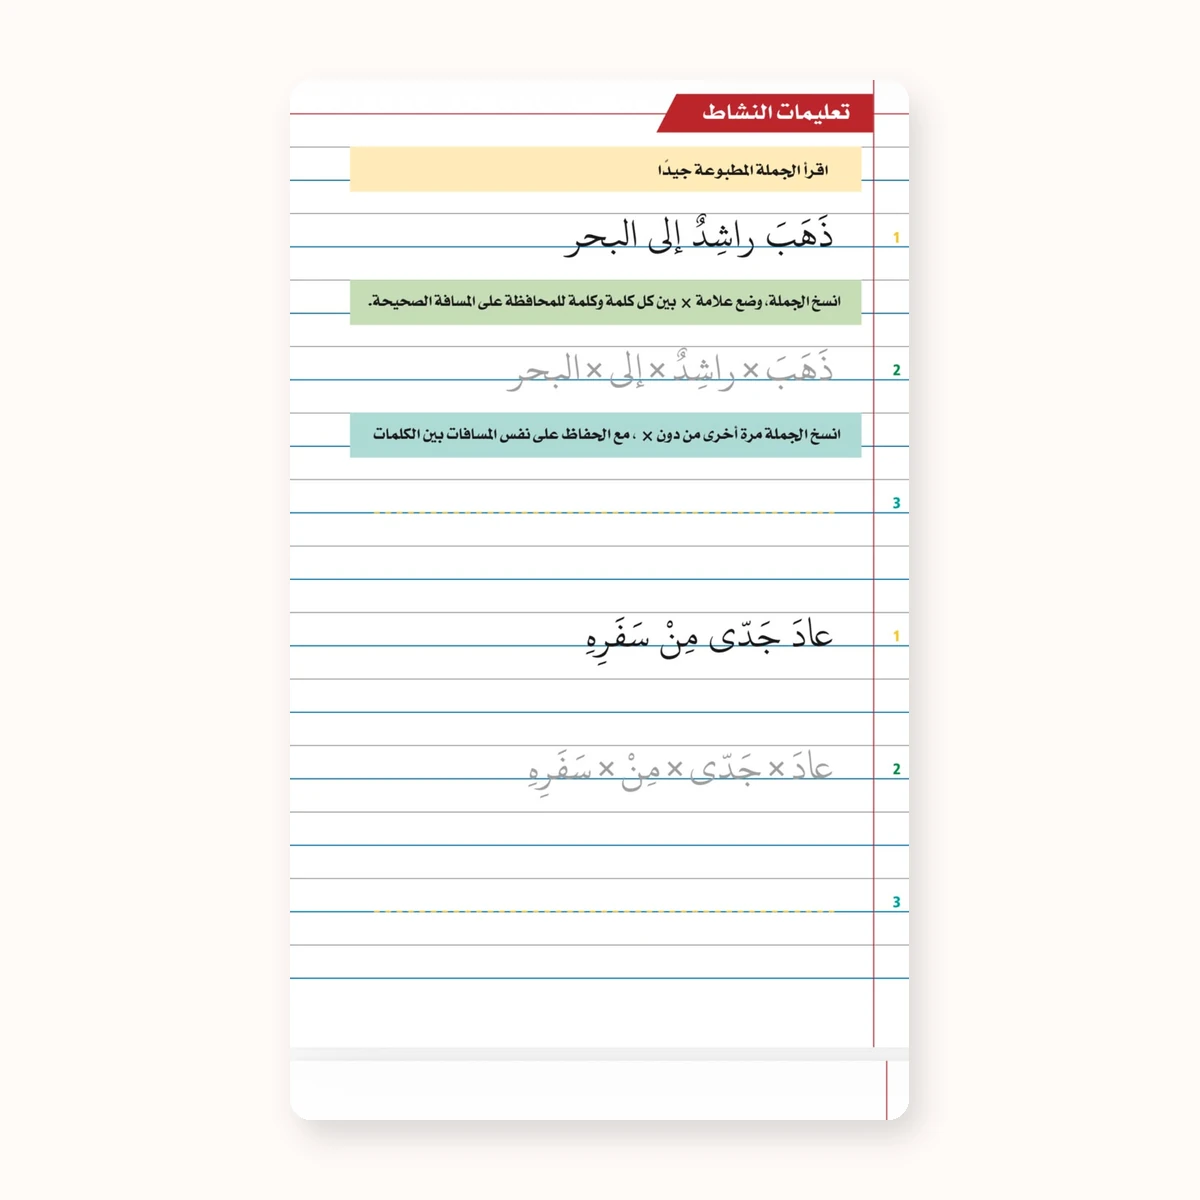 تعليمات النشاط
اقرأ الجملة المطبوعة جيدًا
1 ذَهَبَ راشِدٌ إلى البحر
انسخ الجملة، وضع علامة × بين كل كلمة وكلمة للمحافظة على المسافة الصحيحة.
2 ذَهَبَ × راشِدٌ × إلى × البحر
انسخ الجملة مرة أخرى من دون × ، مع الحفاظ على نفس المسافات بين الكلمات
3
1 عادَ جَدّى مِنْ سَفَرِهِ
2 عادَ × جَدّى × مِنْ × سَفَرِهِ
3